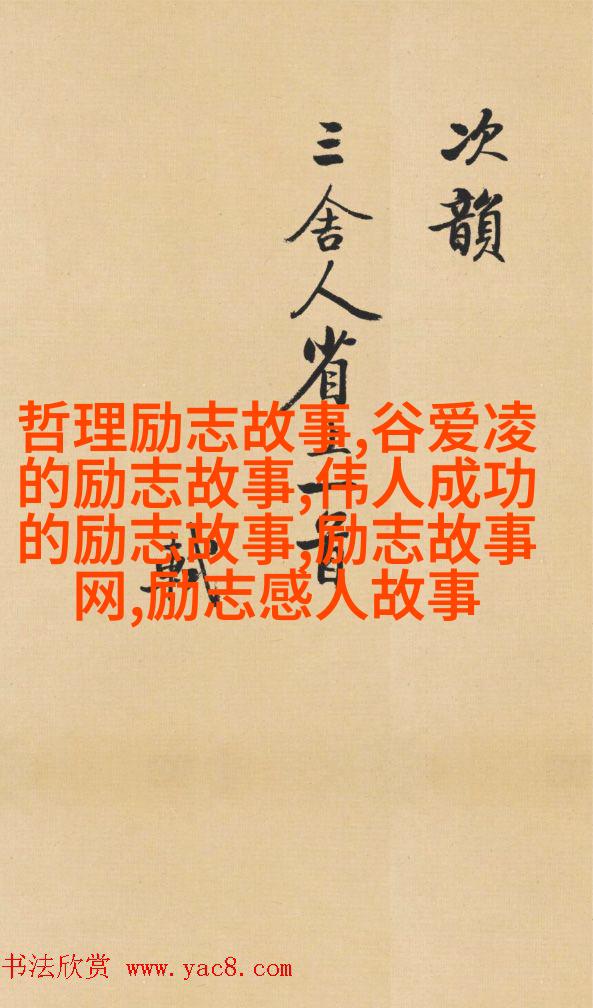 次韻
三舍人省上一首
軾
哲理励志故事,谷爱凌
的励志故事,伟人成功
的励志故事,励志故事
网,励志感人故事
书法欣赏 www.yac8.com